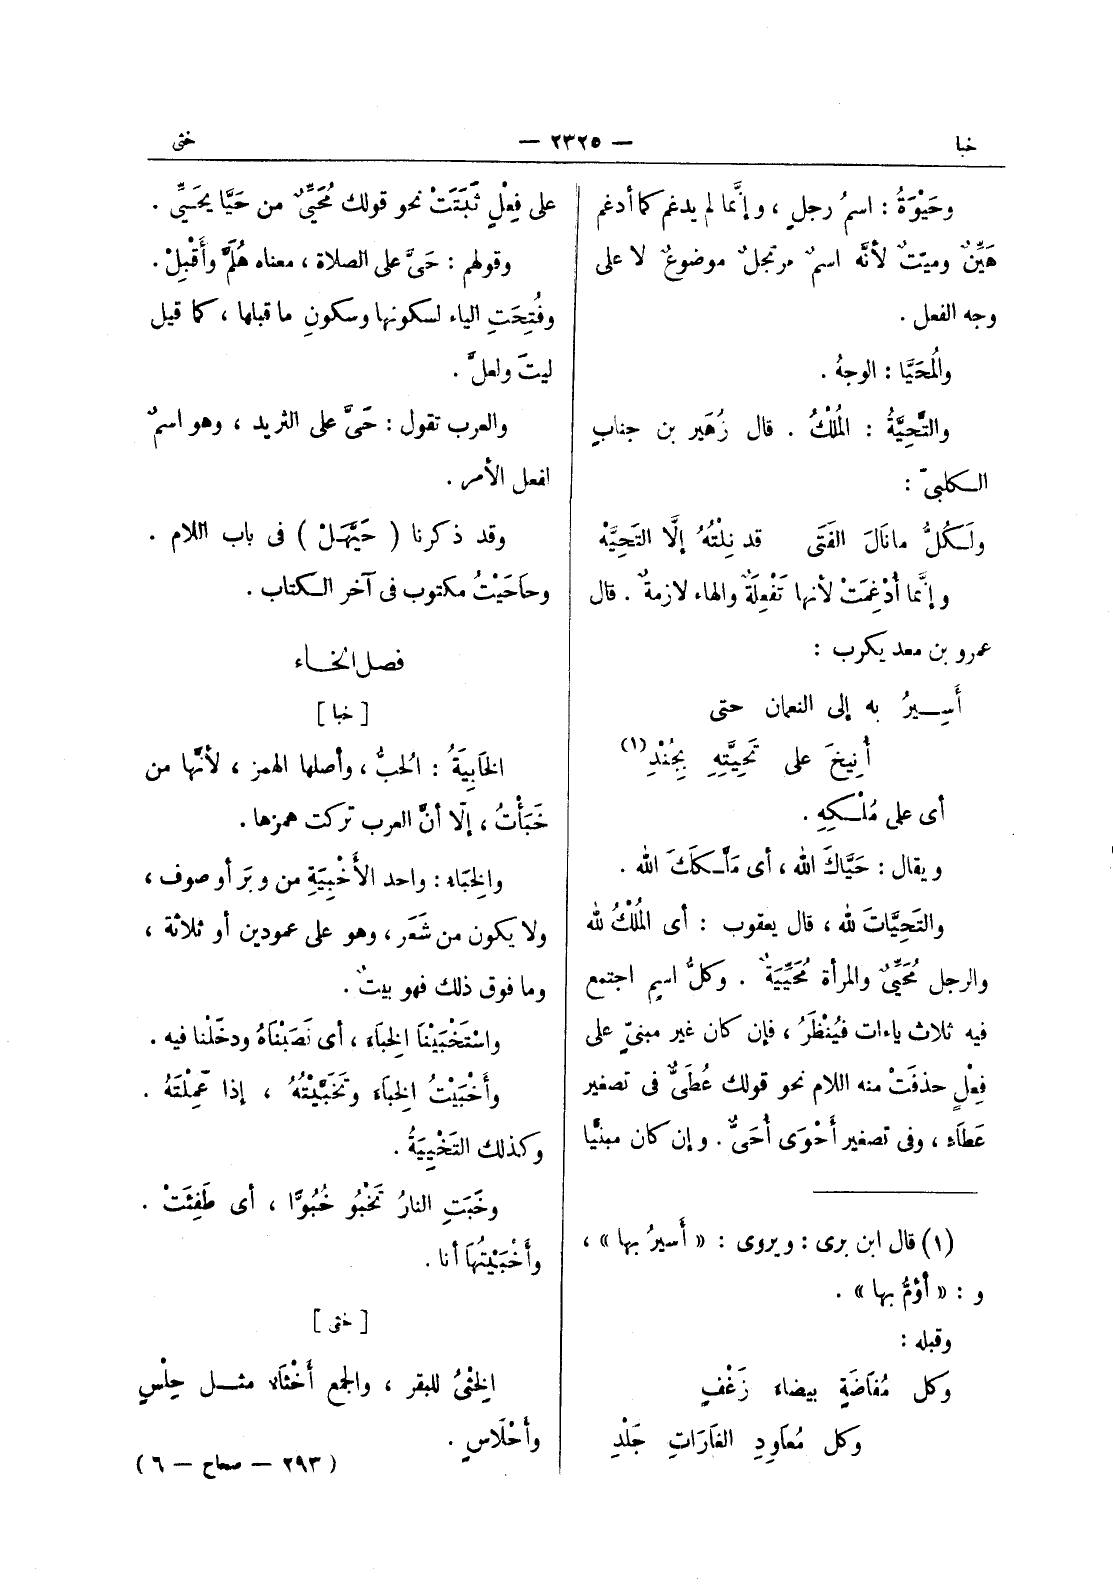 خبا
— ٢٣٢٥ —
خثى
وحَيْوَةُ : اسمُ رجلٍ ، وإنَّما لم يدغم كما أدغم
هَيِّنٌ وميّتٌ لأنَّه اسمٌ مرتجلٌ موضوعٌ لا على
وجه الفعل .
والُمحَيَّا : الوجهُ .
والتَّحِيَّةُ : الُملْكُ . قال زُهَير بن جنابٍ
الكلبىّ :
ولَكلُّ مانَالَ الفَتَى قد نِلْتُهُ إلَّا التَحِيَّهْ
وإنَّما أُدْغِمَتْ لأنها تَفْعِلَةٌ والهاء لازمةٌ . قال
عمرو بن معد يكرب :
أَسِيرُ به إلى النعمان حتى
أُنِيخَ على تَحِيَّتِهِ بِجُنْدِ (١)
أى على مُلْكِهِ .
ويقال : حَيَّاكَ الله ، أى مَلَّكَكَ الله .
والتَحِيَّات لله ، قال يعقوب : أى الُملْكُ لله
والرجل مُحَيِّىٌ والمرأة مُحَيِّيَةٌ . وكلُّ اسمٍ اجتمع
فيه ثلاث ياءات فيُنْظَرُ ، فإن كان غير مبنىٍّ على
فِعْلٍ حذفَتْ منه اللام نحو قولك عُطَىٌّ فى تصغير
عَطَاءٍ ، وفى تصغير أَحْوَى أُحَىٌّ . وإن كان مبنيًّا
(١) قال ابن برى : ويروى : « أَسيرُ بها » ،
و : « أؤمُّ بها » .
وقبله :
وكل مُفَاضَةٍ بيضاء زَغْفٍ
وكل مُعَاوِدِ الغَارَاتِ جَلْدِ
على فِعْلٍ ثَبَتَتْ نحو قولك مُحَيِّىٌ من حَيَّا يحَيِّى .
وقولهم : حَىَّ على الصلاة ، معناه هَلُمَّ وأَقْبِلْ .
وفُتِحَتِ الياء لسكونها وسكونِ ما قبلها ، كما قيل
ليتَ ولعلَّ .
والعرب تقول : حَىَّ على الثريد ، وهو اسمٌ
لفعل الأمر .
وقد ذكرنا ( حَيَّهَلْ ) فى باب اللام .
وحَاحَيْتُ مكتوب فى آخر الكتاب .
فصل الخاء
[ خبا ]
الخَابِيَةُ : الُحبُّ ، وأصلها الهمز ، لأنَّها من
خَبَأْتُ ، إلّا أنَّ العرب تركت همزها .
والِخبَاء : واحد الأَخْبِيَةِ من وبَر أو صوف ،
ولا يكون من شَعَر ، وهو على عمودين أو ثلاثة ،
وما فوق ذلك فهو بيتٌ .
واسْتَخْبَيْنَا الِخبَاءَ ، أى نَصَبْنَاهُ ودخَلْنا فيه .
وأَخْبَيْتُ الِخبَاءَ وتَخَبَّيْتُهُ ، إذا عَمِلْتَهُ .
وكذلك التَخْبِيَةُ .
وخَبَتِ النارُ تَخْبُو خُبُوًّا ، أى طَفِئَتْ .
وأَخْبَيْتُهَا أنا .
[ خثى ]
الِخثْىُ للبقر ، والجمع أَخْثَاء مثل حِلْسٍ
وأَحْلَاسٍ .
( ٢٩٣ — صحاح — ٦ )